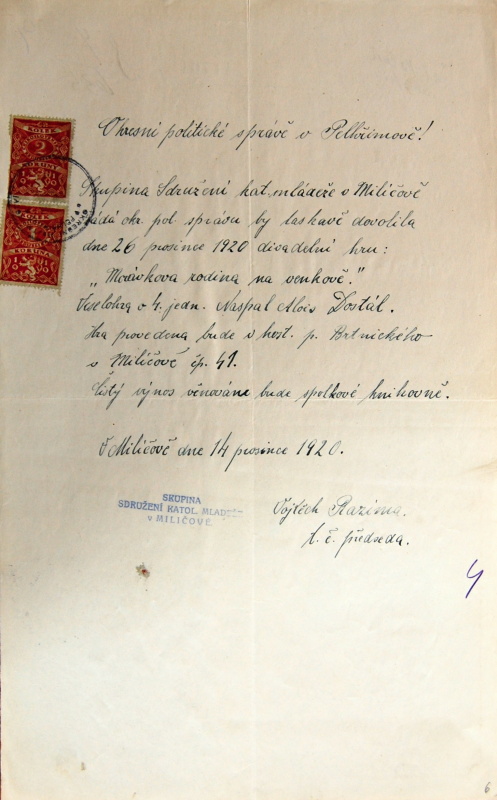 Okresní politické správě v Pelhřimově!
Skupina Sdružení kat. mládeže v Miličově
žádá okr. pol. správu by laskavě dovolila
dne 26 prosince 1920 divadelní hru:
„Morávkova rodina na venkově."
Veselohra o 4. jedn. Napsal Alois Dostál.
Hra provedena bude v host. p. Brtnického
v Miličově čp. 41.
Čistý výnos věnován bude spolkové knihovně.
V Miličově dne 14 prosince 1920.
SKUPINA
SDRUŽENÍ KATOL. MLÁDEŽE
v MILIČOVĚ.
Vojtěch Razima.
t. č. předseda.
KOLEK
2
KORUNA
6